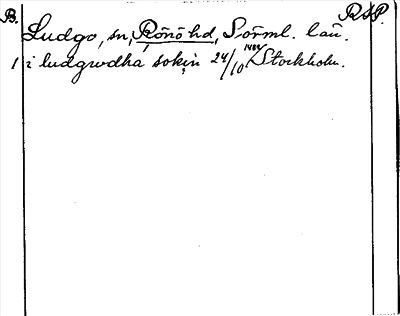 B. RAP.
Ludgo, sn, Rönö hd, Sörml. län.
1 i ludgwdha sokṇ 24/10 1404 Stockholm.